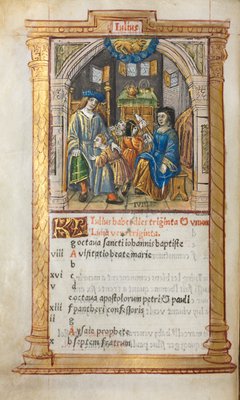 Iulius
IVLLET
KL Iulius habet dies triginta & unum
Luna vero triginta.
g Octava sancti iohannis baptiste
viii A Visitatio beate marie
b
xvi c
v d
e Octava apostolorum petri & pauli
xiii f Pantheri confessoris
ii g
A ysaie prophete
x b septem fratrum